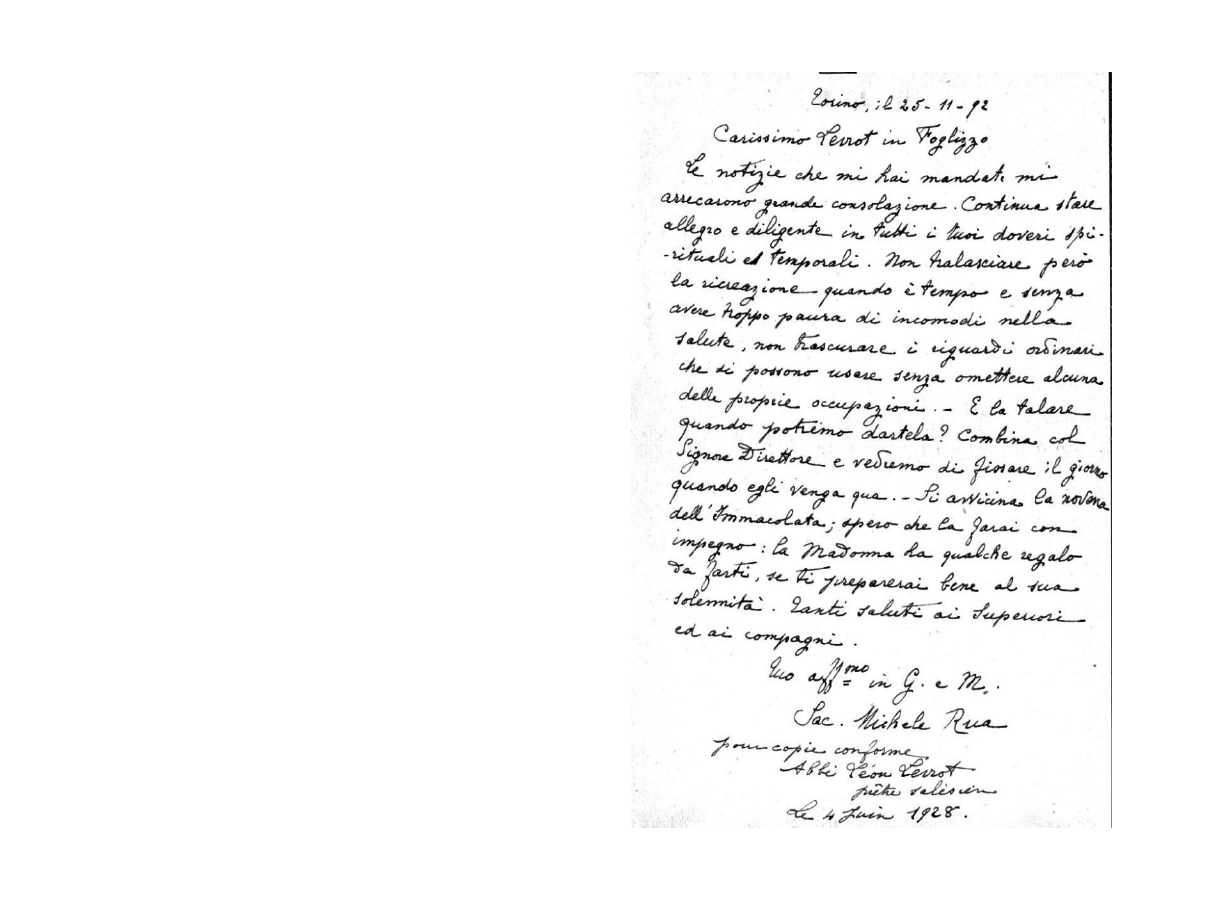 Torino, il 25-11-92
Carissimo Lerrot in Foglizzo
Le notizie che mi hai mandate mi
arrecarono grande consolazione. Continua stare
allegro e diligente in tutti i tuoi doveri spi-
-rituali ed temporali. Non tralasciare però
la ricreazione quando è tempo e senza
avere troppo paura di incomodi nella
salute, non trascurare i riguardi ordinari
che si possono usare senza omettere alcuna
delle proprie occupazioni. - E la talare
quando potremo dartela? Combina col
Signore Direttore e vedremo di fissare il giorno
quando egli venga qua. - Si avvicina la novena
dell'Immacolata; spero che la farai con
impegno: la Madonna ha qualche regalo
da farti, se ti preparerai bene al sua
solennità. Tanti saluti ai Superiori
ed ai compagni.
Tuo affmo in G. e M.
Sac. Michele Rua
pour copie conforme
Abbé Léon Lerrot
prêtre salésien
Le 4 Juin 1928.